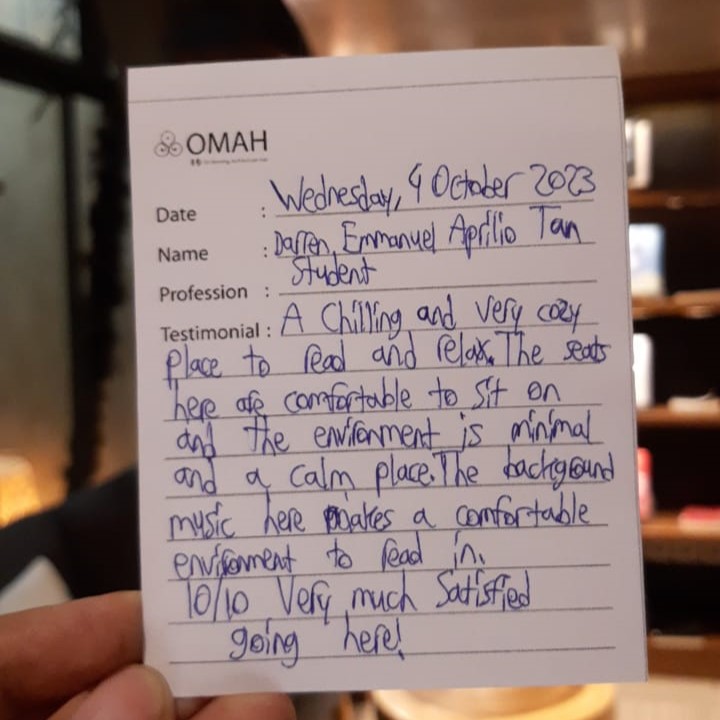 OMAH
Date : Wednesday, 4 October 2023
Name : Darren Emmanuel Aprilio Tan
Profession : Student
Testimonial : A Chilling and very cozy
place to read and relax. The seats
here are comfortable to sit on
and the environment is minimal
and a calm place. The background
music here makes a comfortable
environment to read in.
10/10 Very much Satisfied
going here!